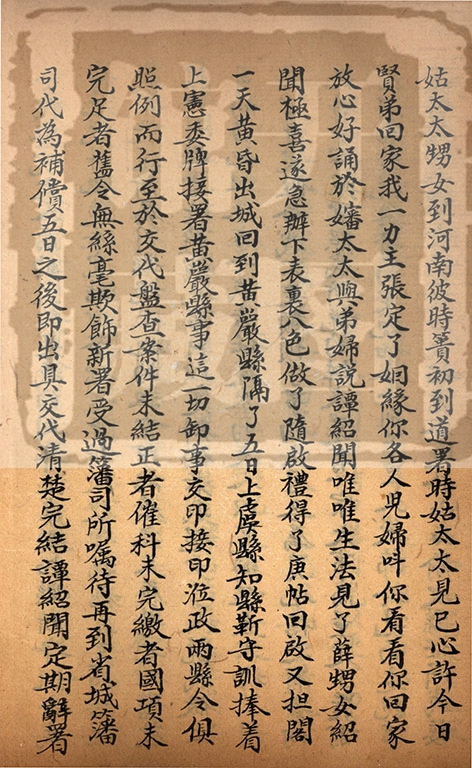 姑太太甥女到河南彼時簣初到道署時姑太太見已心許今日
賢弟回家我一力主張定了姻緣你各人兒婦呌你看看你回家
放心好誦於嬸太太與弟婦説譚紹聞唯唯生法見了薛甥女紹
聞極喜遂急辦下表裏八色做了隨啟禮得了庚帖回啟又担閣
一天黃昏出城回到黃嚴縣隔了五日上虞縣知縣靳守訓捧着
上憲委牌接署黃嚴縣事這一切卸事交印接印涖政兩縣令俱
照例而行至於交代盤查案件未結正者催科未完繳者國項未
完足者舊令無絲毫欺飾新署受過藩司所嘱待再到省城藩
司代為補償五日之後即出具交代清楚完結譚紹聞定期辭署